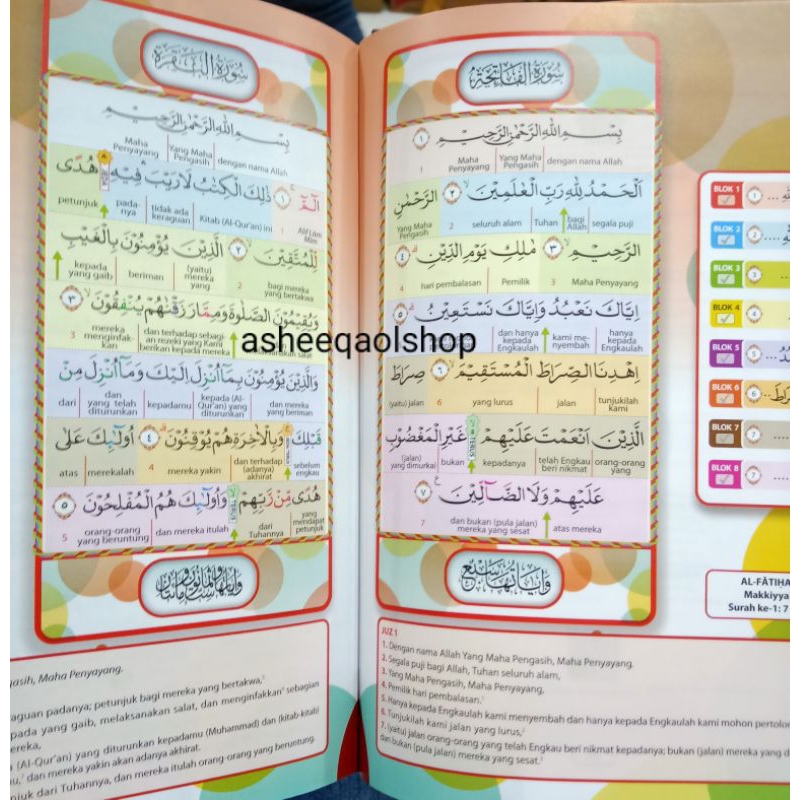 سُوْرَةُ الْفَاتِحَةِ
بِسْمِ اللهِ الرَّحْمٰنِ الرَّحِيْمِ ١
1 Maha Penyayang Yang Maha Pengasih dengan nama Allah
اَلْحَمْدُ لِلّٰهِ رَبِّ الْعٰلَمِيْنَ ٢ الرَّحْمٰنِ
Yang Maha Pengasih 2 seluruh alam Tuhan bagi Allah segala puji
الرَّحِيْمِ ٣ مٰلِكِ يَوْمِ الدِّيْنِ ٤
4 hari pembalasan Pemilik 3 Maha Penyayang
اِيَّاكَ نَعْبُدُ وَاِيَّاكَ نَسْتَعِيْنُ ٥
dan hanya kepada Engkaulah kami me-nyembah hanya kepada Engkaulah
اِهْدِنَا الصِّرَاطَ الْمُسْتَقِيْمَ ٦ صِرَاطَ
(yaitu) jalan 6 yang lurus jalan tunjukilah kami
الَّذِيْنَ اَنْعَمْتَ عَلَيْهِمْ غَيْرِ الْمَغْضُوْبِ
(jalan) yang dimurkai bukan kepadanya telah Engkau beri nikmat orang-orang yang
عَلَيْهِمْ وَلَا الضَّاۤلِّيْنَ ٧
7 dan bukan (pula jalan) mereka yang sesat atas mereka
وَاٰيَاتُهَا سَبْعٌ
JUZ 1
1. Dengan nama Allah Yang Maha Pengasih, Maha Penyayang.
2. Segala puji bagi Allah, Tuhan seluruh alam,
3. Yang Maha Pengasih, Maha Penyayang,
4. Pemilik hari pembalasan.
5. Hanya kepada Engkaulah kami menyembah dan hanya kepada Engkaulah kami mohon
6. Tunjukilah kami jalan yang lurus,
7. (yaitu) jalan orang-orang yang telah Engkau beri nikmat kepadanya; bukan (jalan) mereka yang
dan bukan (pula jalan) mereka yang sesat.
BLOK 1
BLOK 2
BLOK 3
BLOK 4
BLOK 5
BLOK 6
BLOK 7
BLOK 8
AL-FĀTIHA
Makkiyya
Surah ke-1: 7
سُوْرَةُ الْبَقَرَةِ
بِسْمِ اللهِ الرَّحْمٰنِ الرَّحِيْمِ
Maha Penyayang Yang Maha Pengasih dengan nama Allah
الۤمّۤ ١ ذٰلِكَ الْكِتٰبُ لَا رَيْبَ فِيْهِ هُدًى
petunjuk pada-nya tidak ada keraguan Kitab (Al-Qur'an) ini 1 Alif Lām Mīm
لِّلْمُتَّقِيْنَ ٢ الَّذِيْنَ يُؤْمِنُوْنَ بِالْغَيْبِ
kepada yang gaib beriman (yaitu) mereka yang 2 bagi mereka yang bertakwa
وَيُقِيْمُوْنَ الصَّلٰوةَ وَمِمَّا رَزَقْنٰهُمْ يُنْفِقُوْنَ ٣
3 mereka menginfak-kan dan terhadap sebagi-an rezeki yang Kami berikan kepada mereka
وَالَّذِيْنَ يُؤْمِنُوْنَ بِمَآ اُنْزِلَ اِلَيْكَ وَمَآ اُنْزِلَ مِنْ
dari dan yang telah diturunkan kepadamu kepada (Al-Qur'an) yang diturunkan dan mereka yang beriman
قَبْلِكَ وَبِالْاٰخِرَةِ هُمْ يُوْقِنُوْنَ ٤ اُولٰۤىِٕكَ عَلٰى
atas merekalah 4 mereka yakin dan terhadap (adanya) akhirat sebelum engkau
هُدًى مِّنْ رَّبِّهِمْ وَاُولٰۤىِٕكَ هُمُ الْمُفْلِحُوْنَ ٥
5 orang-orang yang beruntung dan mereka itulah dari Tuhannya yang mendapat petunjuk
asih, Maha Penyayang.
aguan padanya; petunjuk bagi mereka yang bertakwa,
pada yang gaib, melaksanakan salat, dan menginfakkan sebagian
ereka,
(Al-Qur'an) yang diturunkan kepadamu (Muhammad) dan (kitab-kitab)
dan mereka yakin akan adanya akhirat.
unjuk dari Tuhannya, dan mereka itulah orang-orang yang beruntung.
asheeqaolshop